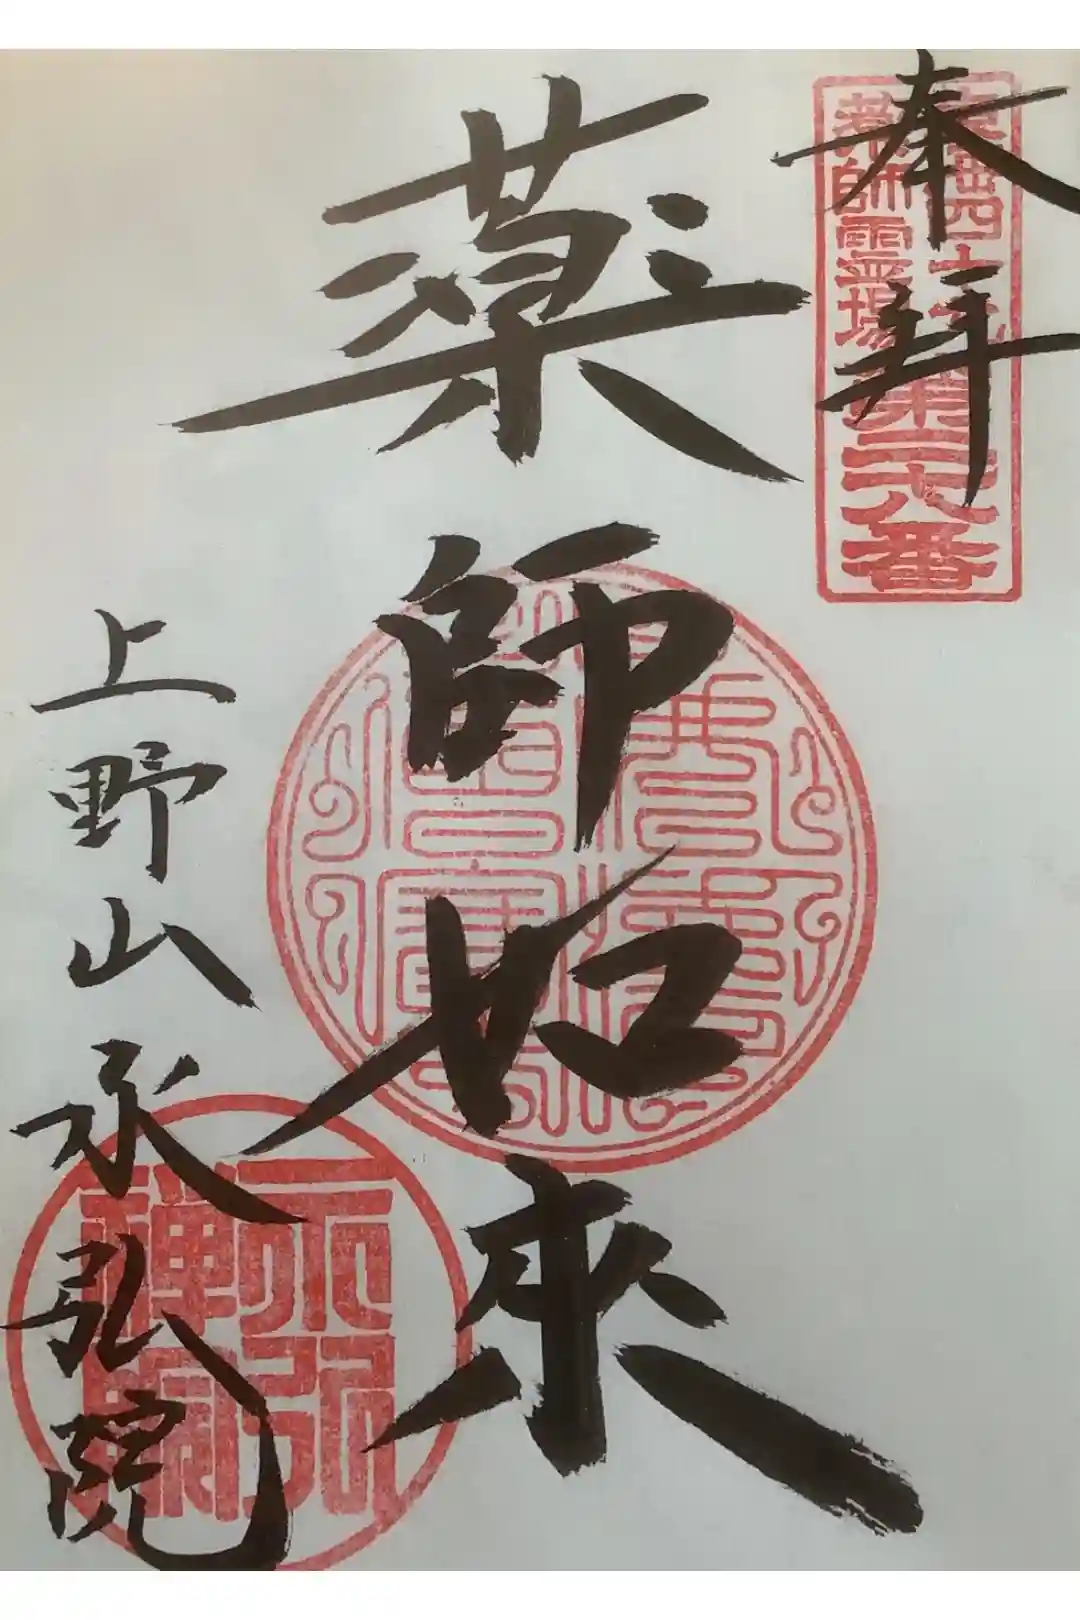 奉拝
東海四十九
薬師霊場
薬師如来
上野山永弘院
永弘
禅院